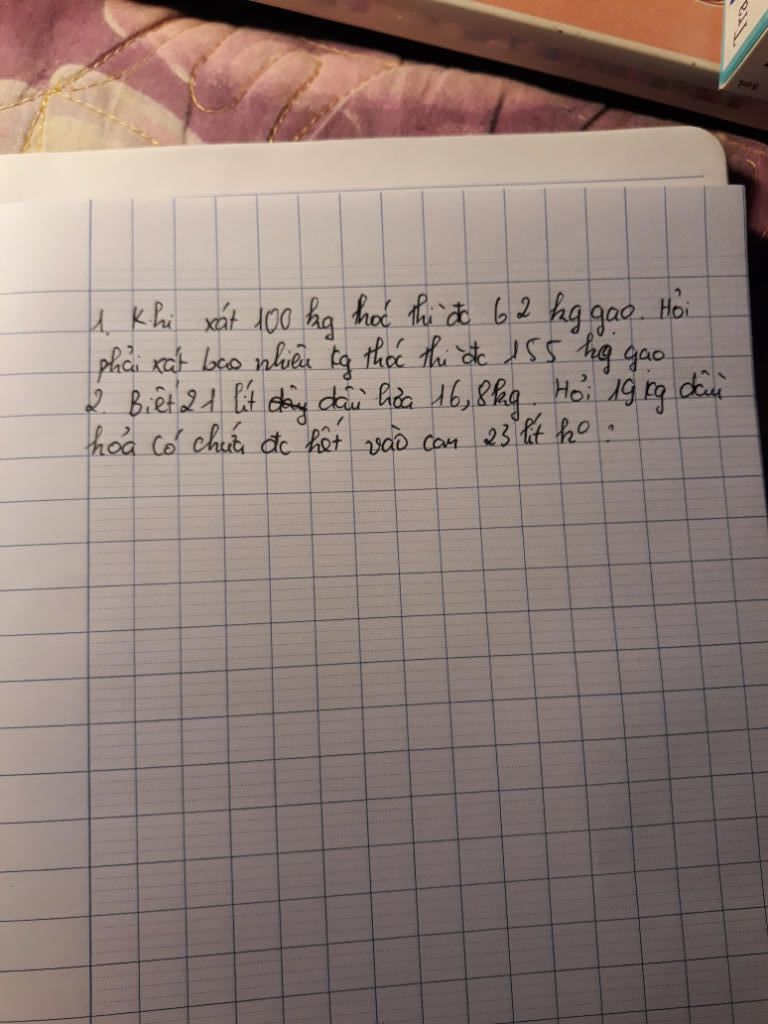 Tra
5ml
1. Khi xát 100 kg thóc thì đc 62 kg gạo. Hỏi
phải xát bao nhiêu kg thóc thì đc 155 kg gạo
2. Biết 21 lít dầu hỏa 16,8kg. Hỏi 19 kg dầu
hoả có chứa đc hết vào can 23 lít ko ?